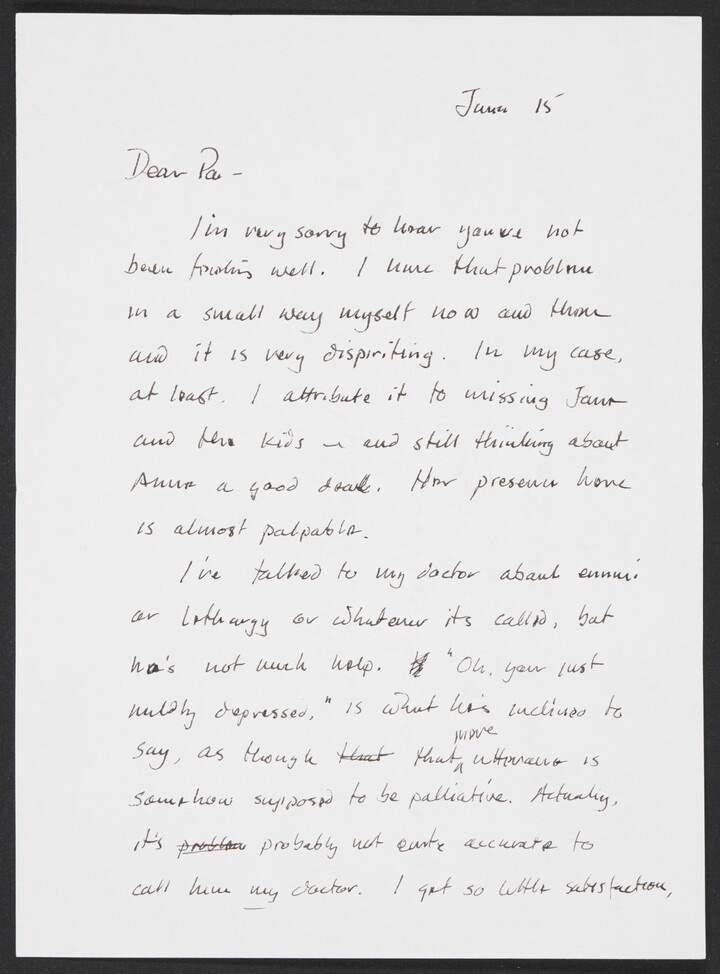 June 15
Dear Pa -
I'm very sorry to hear you've not
been feeling well. I have that problem
in a small way myself now and then
and it is very dispiriting. In my case,
at least. I attribute it to missing Jane
and the kids — and still thinking about
Anne a good deal. Her presence here
is almost palpable.
I've talked to my doctor about ennui
or lethargy or whatever its called, but
he's not much help. "Oh, your just
mildly depressed," is what he's inclined to
say, as though that mere utterance is
somehow supposed to be palliative. Actually,
it's probably not quite accurate to
call him my doctor. I get so little satisfaction,